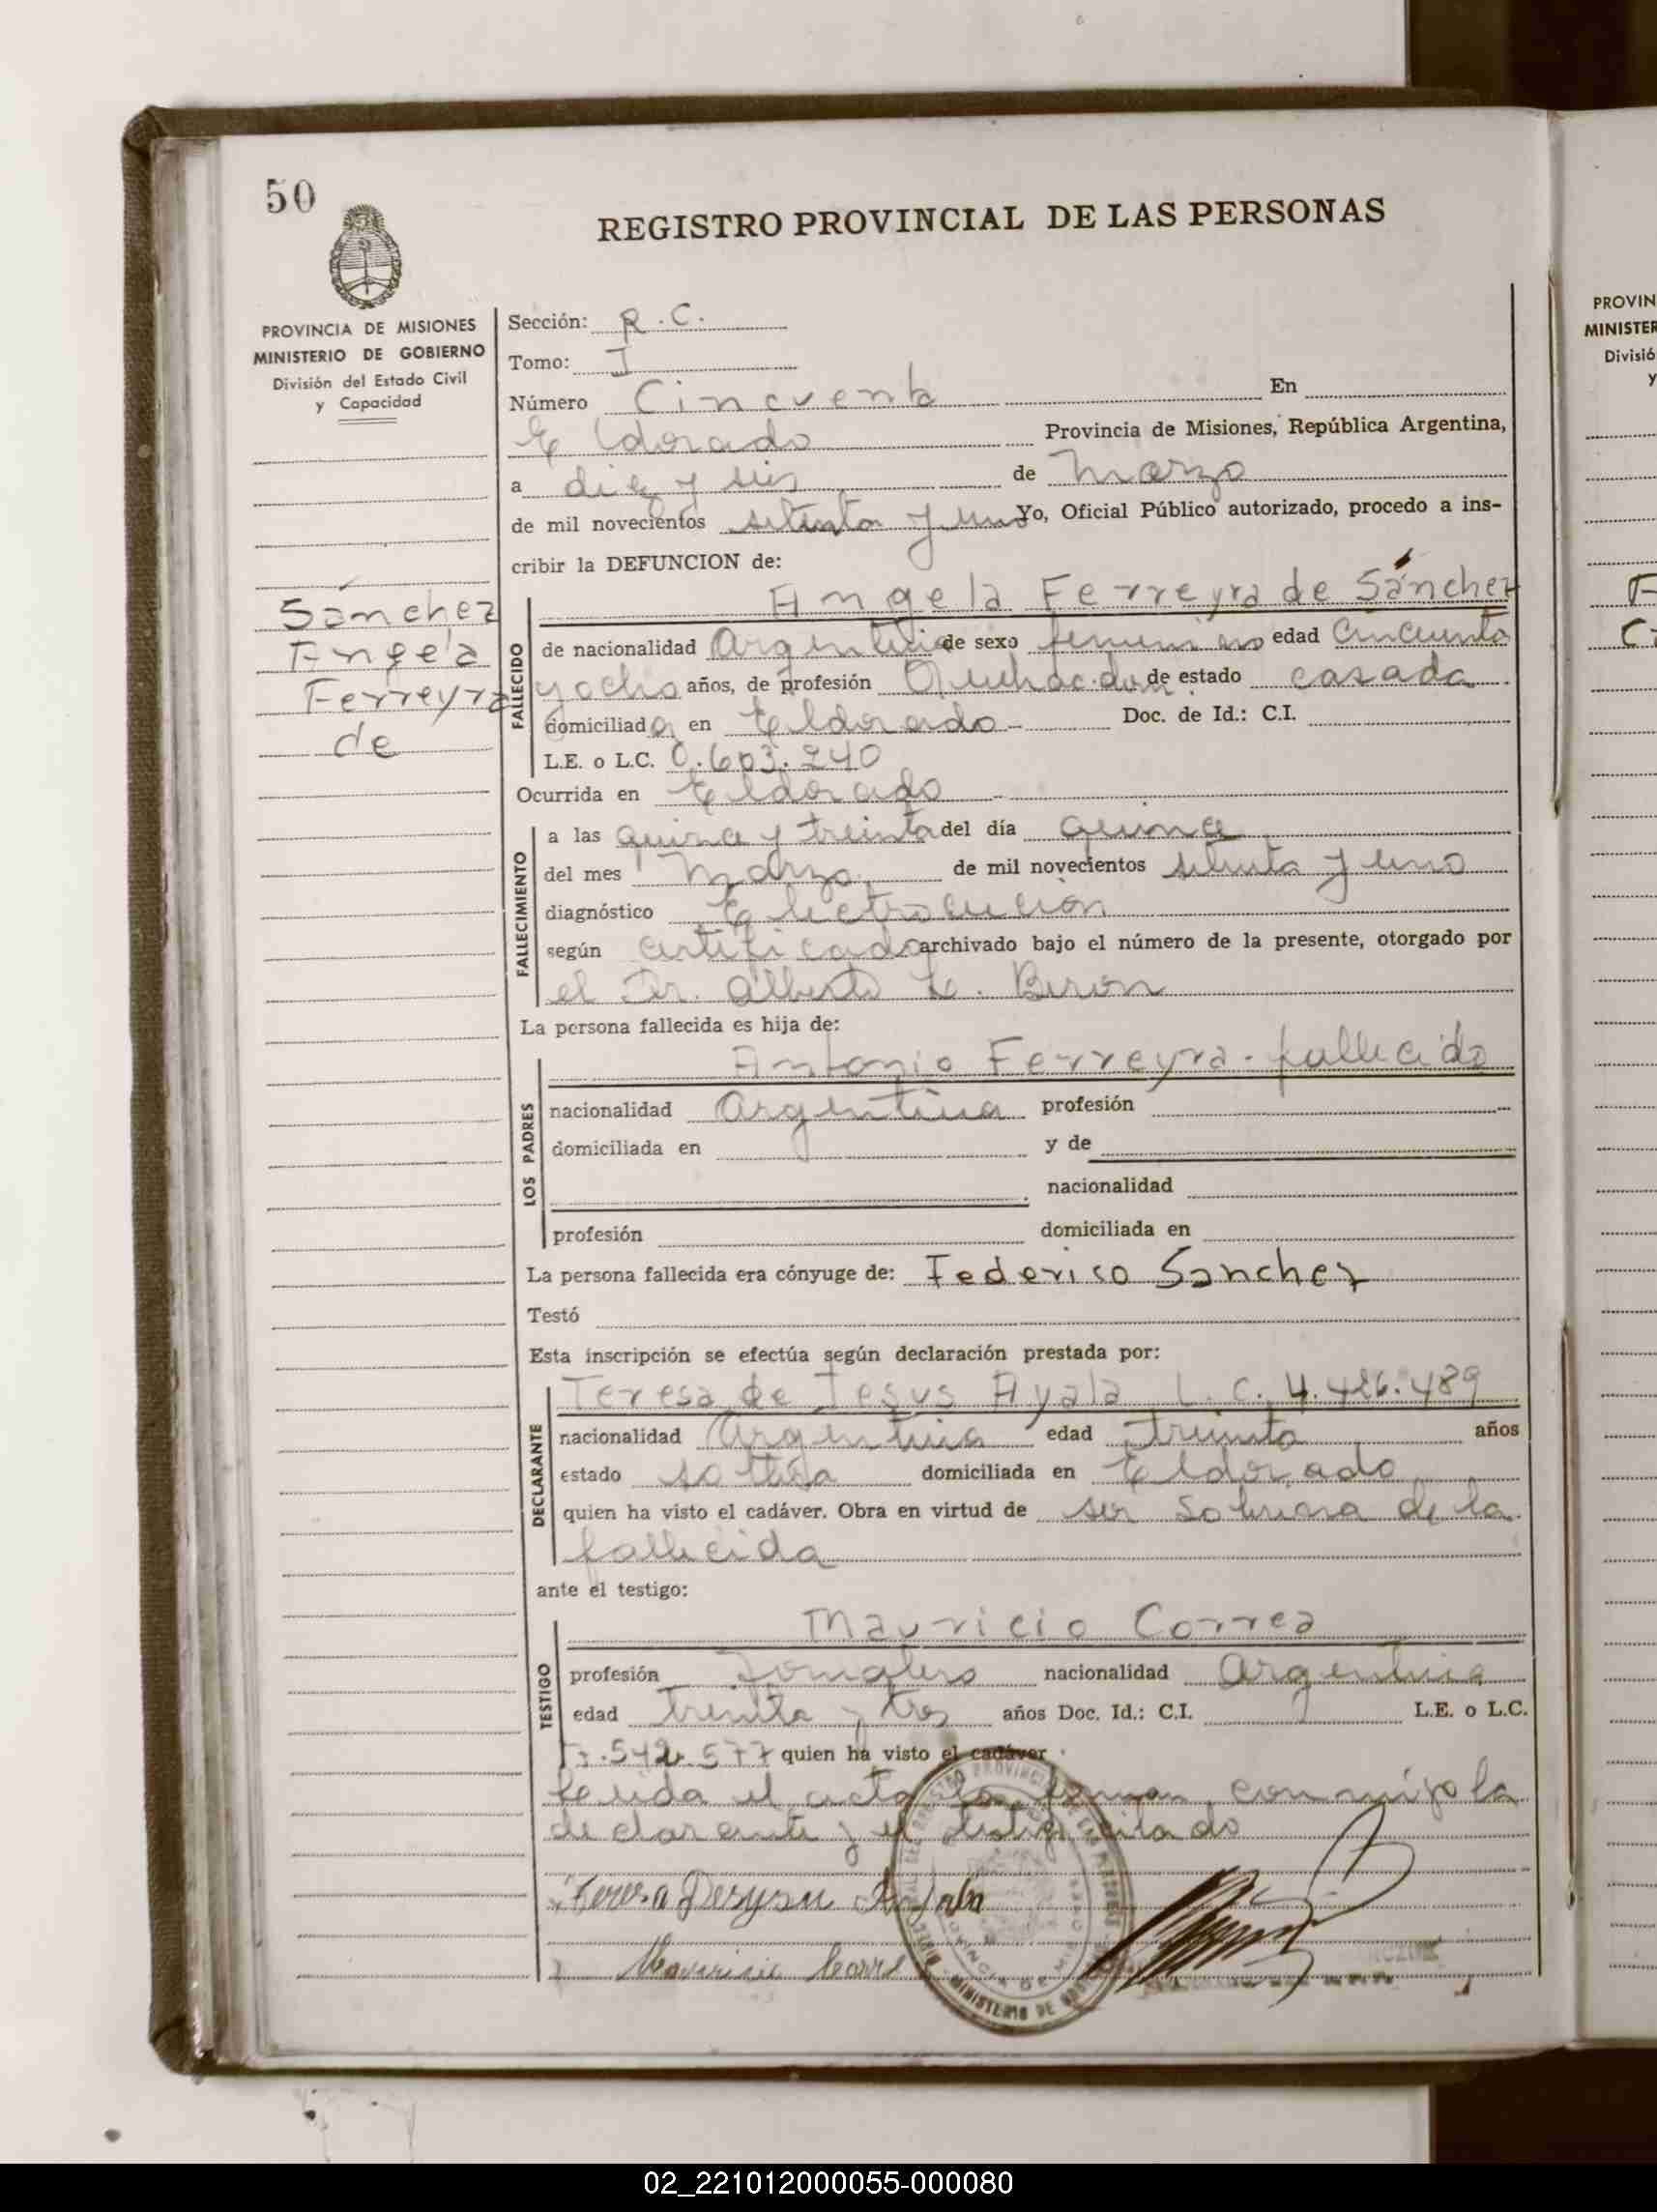 50
REGISTRO PROVINCIAL DE LAS PERSONAS
PROVINCIA DE MISIONES
MINISTERIO DE GOBIERNO
División del Estado Civil
y Capacidad
Sánchez
Angela
Ferreyra
de
Sección: R.C.
Tomo: I
Número Cincuenta En
Eldorado Provincia de Misiones, República Argentina,
a diez y seis de Marzo
de mil novecientos setenta y uno Yo, Oficial Público autorizado, procedo a ins-
cribir la DEFUNCION de:
FALLECIDO
Angela Ferreyra de Sánchez
de nacionalidad Argentina de sexo femenino edad cincuenta
y ocho años, de profesión Quehac. dom. de estado casada
domiciliada en Eldorado Doc. de Id.: C.I.
L.E. o L.C. 0.603.240
Ocurrida en Eldorado
FALLECIMIENTO
a las quince y treinta del día quince
del mes Marzo de mil novecientos setenta y uno
diagnóstico Electrocución
según certificado archivado bajo el número de la presente, otorgado por
el Dr. Alberto E. Birón
La persona fallecida es hija de:
LOS PADRES
Antonio Ferreyra - fallecido
nacionalidad Argentina profesión
domiciliada en y de
nacionalidad
profesión domiciliada en
La persona fallecida era cónyuge de: Federico Sanchez
Testó
Esta inscripción se efectúa según declaración prestada por:
DECLARANTE
Teresa de Jesus Ayala L.C. 4.426.489
nacionalidad Argentina edad treinta años
estado soltera domiciliada en Eldorado
quien ha visto el cadáver. Obra en virtud de ser sobrina de la
fallecida
ante el testigo:
TESTIGO
Mauricio Correa
profesión Jornalero nacionalidad Argentina
edad treinta y tres años Doc. Id.: C.I. L.E. o L.C.
7.542.577 quien ha visto el cadáver
leida el acta la firman conmigo la
declarante y el testigo citado
Teresa Desysu Ayala
Mauricio Corre
PROVIN
MINISTER
Divisió
y
02_221012000055-000080